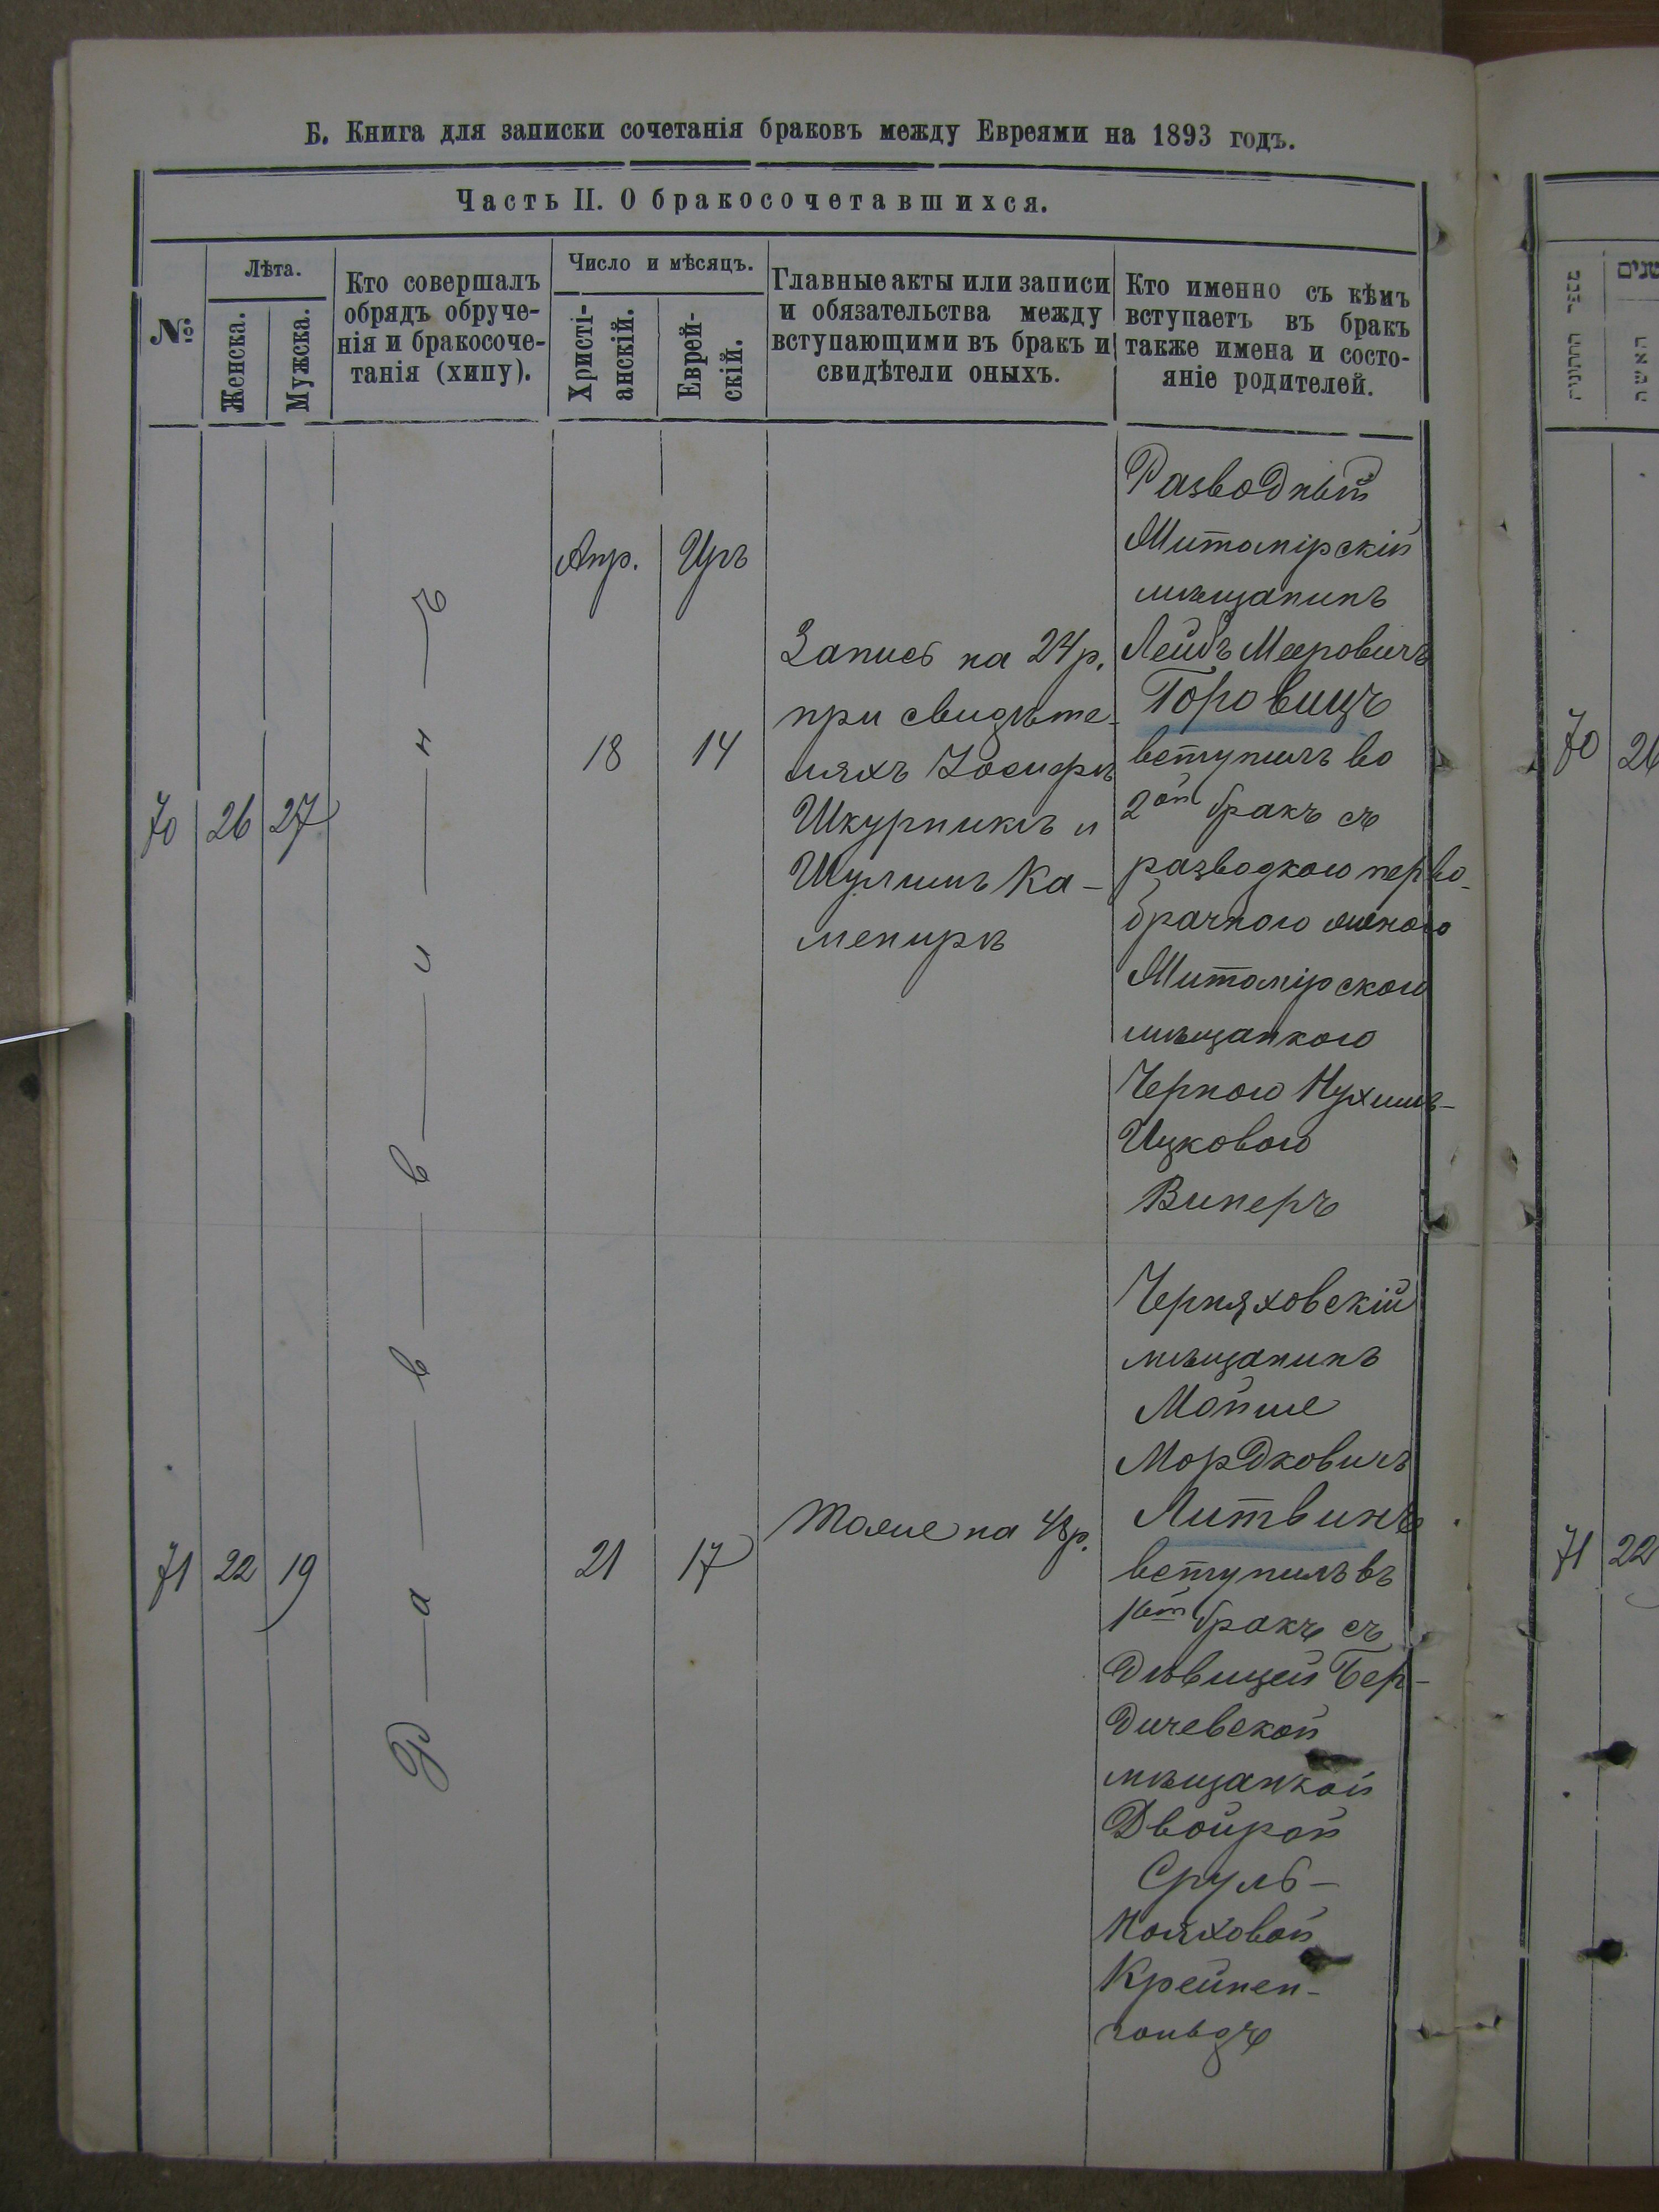 Б. Книга для записки сочетанія браковъ между Евреями на 1893 годъ.
Часть II. О бракосочетавшихся.
№
Лѣта.
Женска.
Мужска.
Кто совершалъ
обрядъ обруче-
нія и бракосоче-
танія (хипу).
Число и мѣсяцъ.
Христі-
анскій.
Еврей-
скій.
Главные акты или записи
и обязательства между
вступающими въ бракъ и
свидѣтели оныхъ.
Кто именно съ кѣмъ
вступаетъ въ бракъ
также имена и состо-
яніе родителей.
70
26
27
Раввинъ
Апр.
18
Иръ
14
Запись на 24 р.
при свидѣте-
ляхъ Іосифѣ
Шкурникъ и
Шулимъ Ка-
менирѣ
Разводный
Житомірскій
мѣщанинъ
Лейбъ Мееровичъ
Горовицъ
вступилъ во
2ой бракъ съ
разводкою перво-
брачною
Житомірскою
мѣщанкою
Черною Нухимъ-
Ицковою
Винеръ
71
22
19
21
17
Тоже на 48 р.
Черняховскій
мѣщанинъ
Мойше
Мордковичъ
Литвинъ
вступилъ въ
1ый бракъ съ
дѣвицей Бер-
дичевской
мѣщанкой
Двойрой
Сруль-
Нояховой
Крейнен-
гольдъ
70
26
71
22